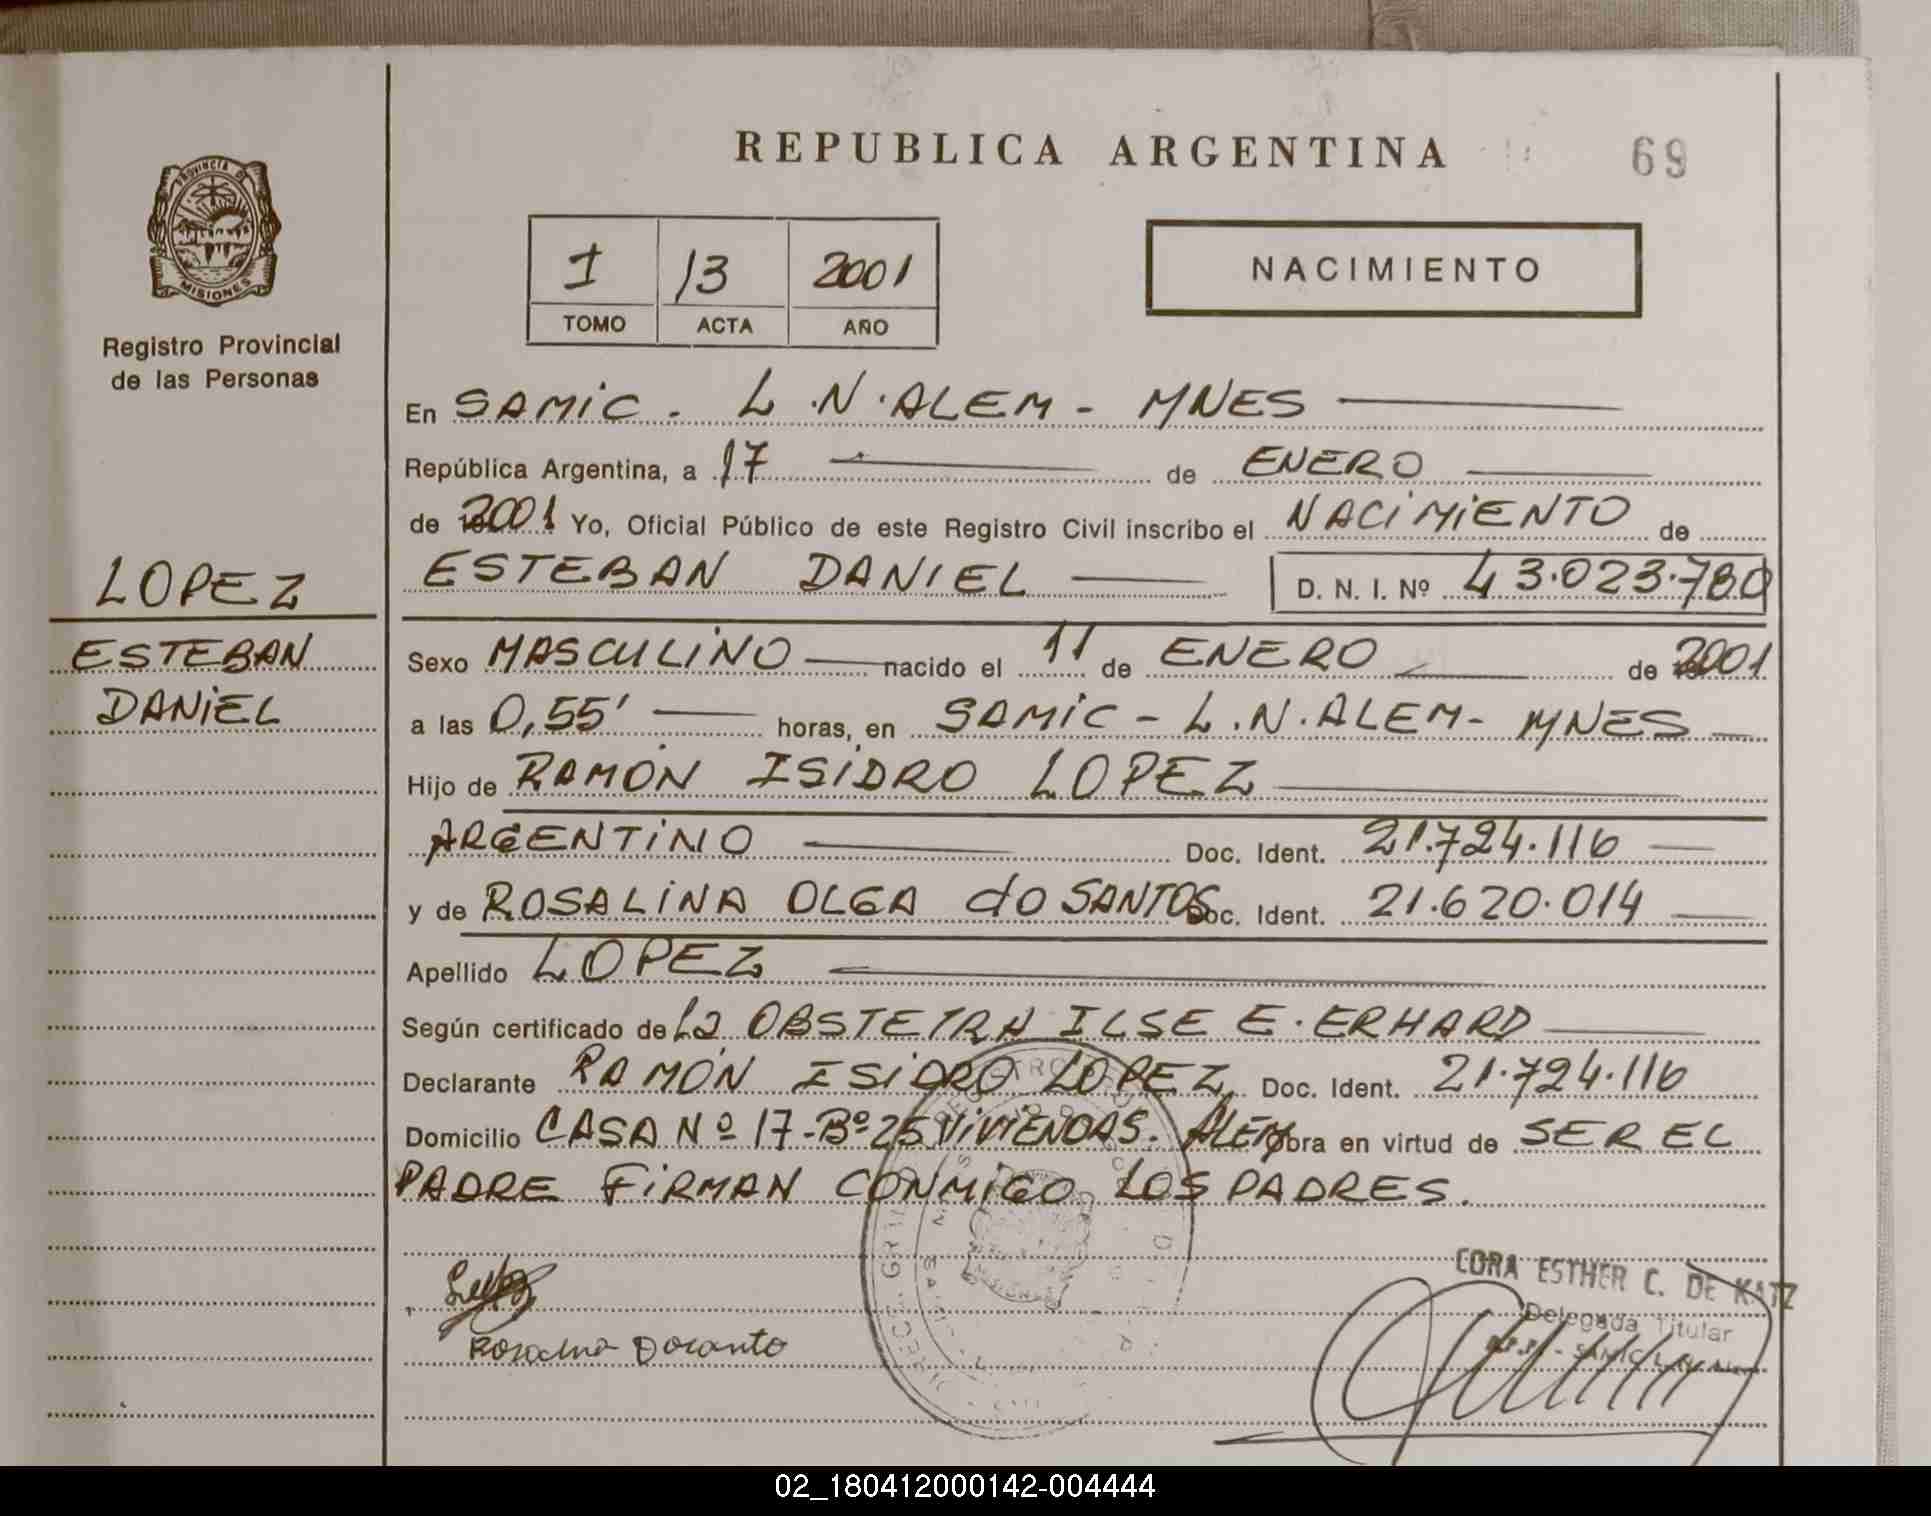 REPUBLICA ARGENTINA
69
PROVINCIA DE
MISIONES
Registro Provincial
de las Personas
I 13 2001
TOMO ACTA AÑO
NACIMIENTO
En SAMIC. L.N.ALEM - MNES
República Argentina, a 17 de ENERO
de 2001 Yo, Oficial Público de este Registro Civil inscribo el NACIMIENTO de
ESTEBAN DANIEL D. N. I. Nº 43.023.780
LOPEZ
ESTEBAN
DANIEL
Sexo MASCULINO nacido el 11 de ENERO de 2001
a las 0,55' horas, en SAMIC - L.N.ALEM - MNES
Hijo de RAMÓN ISIDRO LOPEZ
ARGENTINO Doc. Ident. 21.724.116
y de ROSALINA OLGA do SANTOS Doc. Ident. 21.620.014
Apellido LOPEZ
Según certificado de La OBSTETRA ILSE E. ERHARD
Declarante RAMÓN ISIDRO LOPEZ Doc. Ident. 21.724.116
Domicilio CASA Nº 17 - Bº 25 VIVIENDAS. ALEM obra en virtud de SER EL
PADRE FIRMAN CONMIGO LOS PADRES.
CORA ESTHER C. DE KATZ
Delegada Titular
02_180412000142-004444